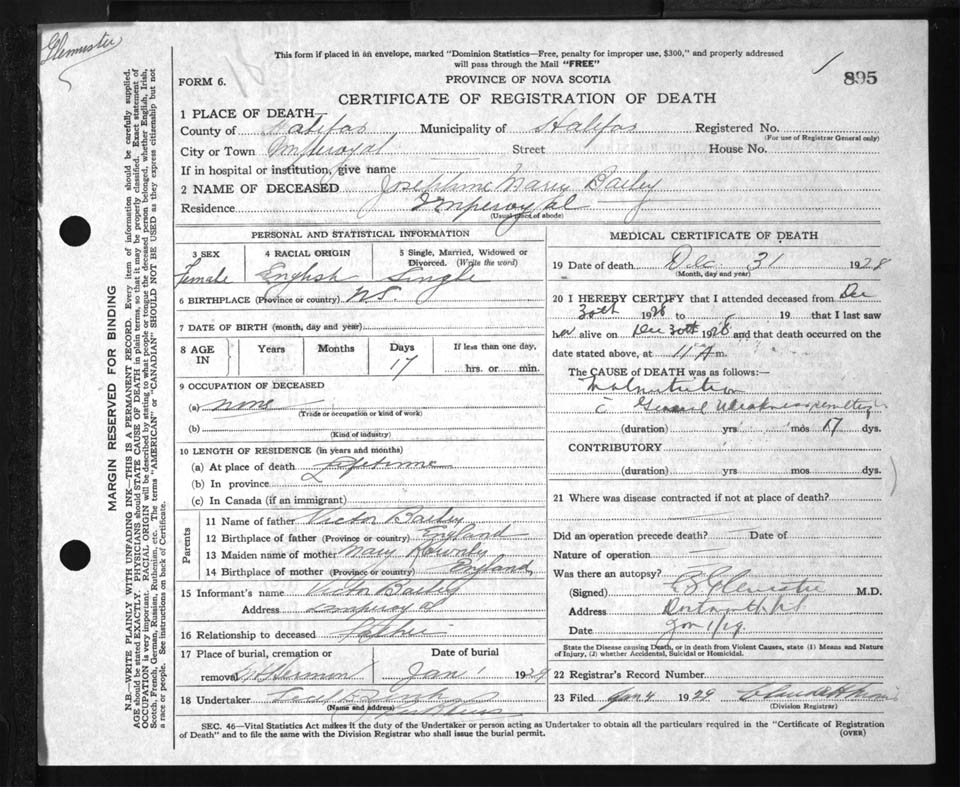 This form if placed in an envelope, marked "Dominion Statistics—Free, penalty for improper use, $300," and properly addressed
will pass through the Mail "FREE"
FORM 6.
PROVINCE OF NOVA SCOTIA
895
CERTIFICATE OF REGISTRATION OF DEATH
1 PLACE OF DEATH
County of Halifax Municipality of Halifax Registered No.
(For use of Registrar General only)
City or Town Imperoyal Street House No.
If in hospital or institution, give name
2 NAME OF DECEASED Josephine Mary Bailey
Residence Imperoyal
(Usual place of abode)
PERSONAL AND STATISTICAL INFORMATION
3 SEX 4 RACIAL ORIGIN 5 Single, Married, Widowed or
Divorced. (Write the word)
Female English Single
6 BIRTHPLACE (Province or country) N.S.
7 DATE OF BIRTH (month, day and year)
8 AGE IN Years Months Days If less than one day,
17 hrs. or min.
9 OCCUPATION OF DECEASED
(a) none
(Trade or occupation or kind of work)
(b)
(Kind of industry)
10 LENGTH OF RESIDENCE (in years and months)
(a) At place of death Lifetime
(b) In province
(c) In Canada (if an immigrant)
Parents
11 Name of father Victor Bailey
12 Birthplace of father (Province or country) England
13 Maiden name of mother Mary
14 Birthplace of mother (Province or country) England
15 Informant's name Victor Bailey
Address Imperoyal
16 Relationship to deceased Father
17 Place of burial, cremation or Date of burial
removal Mt Hermon Jan 1 1929
18 Undertaker
(Name and address)
MEDICAL CERTIFICATE OF DEATH
19 Date of death Dec 31 1928
(Month, day and year)
20 I HEREBY CERTIFY that I attended deceased from Dec
30th 1928 to 19 that I last saw
her alive on Dec 30th 1928 and that death occurred on the
date stated above, at 11 A m.
The CAUSE OF DEATH was as follows:—
Malnutrition
c̄ General Weakness
(duration) yrs mos 17 dys.
CONTRIBUTORY
(duration) yrs. mos. dys.
21 Where was disease contracted if not at place of death?
Did an operation precede death? Date of
Nature of operation
Was there an autopsy?
(Signed) M.D.
Address Dartmouth N.S.
Date Jan 1/29.
State the Disease causing Death, or in death from Violent Causes, state (1) Means and Nature
of Injury, (2) whether Accidental, Suicidal or Homicidal.
22 Registrar's Record Number
23 Filed Jan 4 1929
(Division Registrar)
SEC. 46—Vital Statistics Act makes it the duty of the Undertaker or person acting as Undertaker to obtain all the particulars required in the "Certificate of Registration
of Death" and to file the same with the Division Registrar who shall issue the burial permit.
(OVER)
MARGIN RESERVED FOR BINDING
N.B.—WRITE PLAINLY WITH UNFADING INK—THIS IS A PERMANENT RECORD. Every item of information should be carefully supplied.
AGE should be stated EXACTLY. PHYSICIANS should STATE CAUSE OF DEATH in plain terms, so that it may be properly classified. Exact statement of
OCCUPATION is very important. RACIAL ORIGIN will be described by stating to what people or tongue the deceased person belonged, whether English, Irish,
Scotch, French, German, Russian, Ruthenian, etc. The terms "AMERICAN" or "CANADIAN" SHOULD NOT BE USED as they express citizenship but not
a race or people. See instructions on back of Certificate.